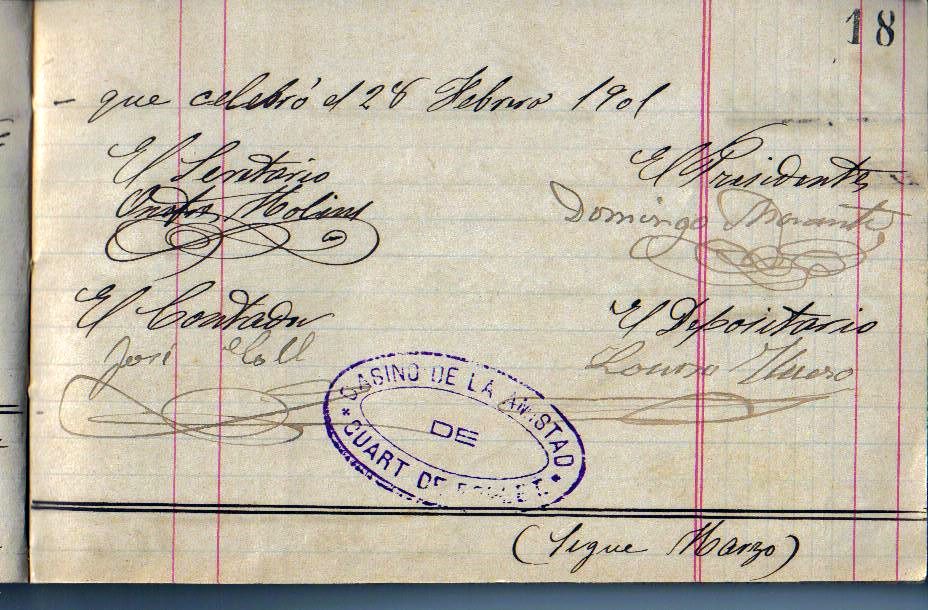 18
- que celebró el 28 Febrero 1901
El Secretario
El Presidente
Molins
Domingo
El Contador
El Depositario
José Coll
CASINO DE LA AMISTAD
DE
CUART DE
(Sigue Marzo)